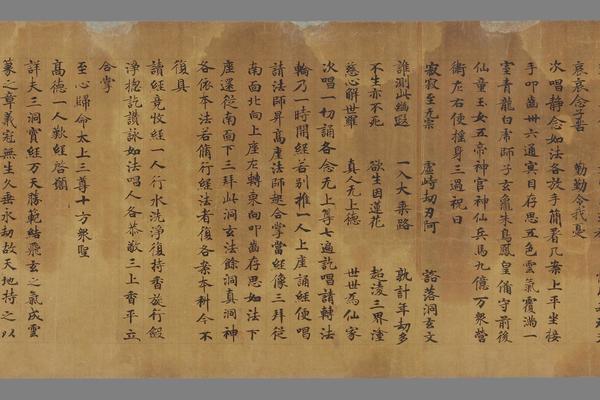 哀哀念子吾 勤勤令我憂
次唱静念如法各放手簡著几案上平坐接
手叩齒卅六通冥目存思五色雲氣覆滿一
室青龍白席師子玄龜朱鳥鳳皇俻守前後
仙童玉女五帝神官神仙兵馬九億万衆營
衛左右便揺身三過祝曰
寂寂至无宗 虚峙劫刃阿 豁落洞玄文
誰測此幽遐 一入大乘路 孰計年劫多
不生亦不死 欲生因蓮花 超凌三界塗
慈心解世羅 真人无上德 世世為仙家
次唱一切誦各念无上尊七遍訖唱請轉法
輪乃一時開經若別推一人上座誦經便唱
請法師昇高座法師起合掌當經像三拜従
南面北向上座左轉東向叩齒存思如法下
座還従南面下三拜此洞玄法餘洞真洞神
各依本法若俻行經法者復各案本科今不
復具
讀經竟收經一人行水洗淨復持香放行假
淨揔訖讃詠如法唱人各恭敬三上香平立
合掌
至心歸命太上三尊十方衆聖
高德一人歎經啓願
詳夫三洞寳經万天勝範結飛玄之氣成雲
篆之章義冠無生久垂永劫故天地持之以